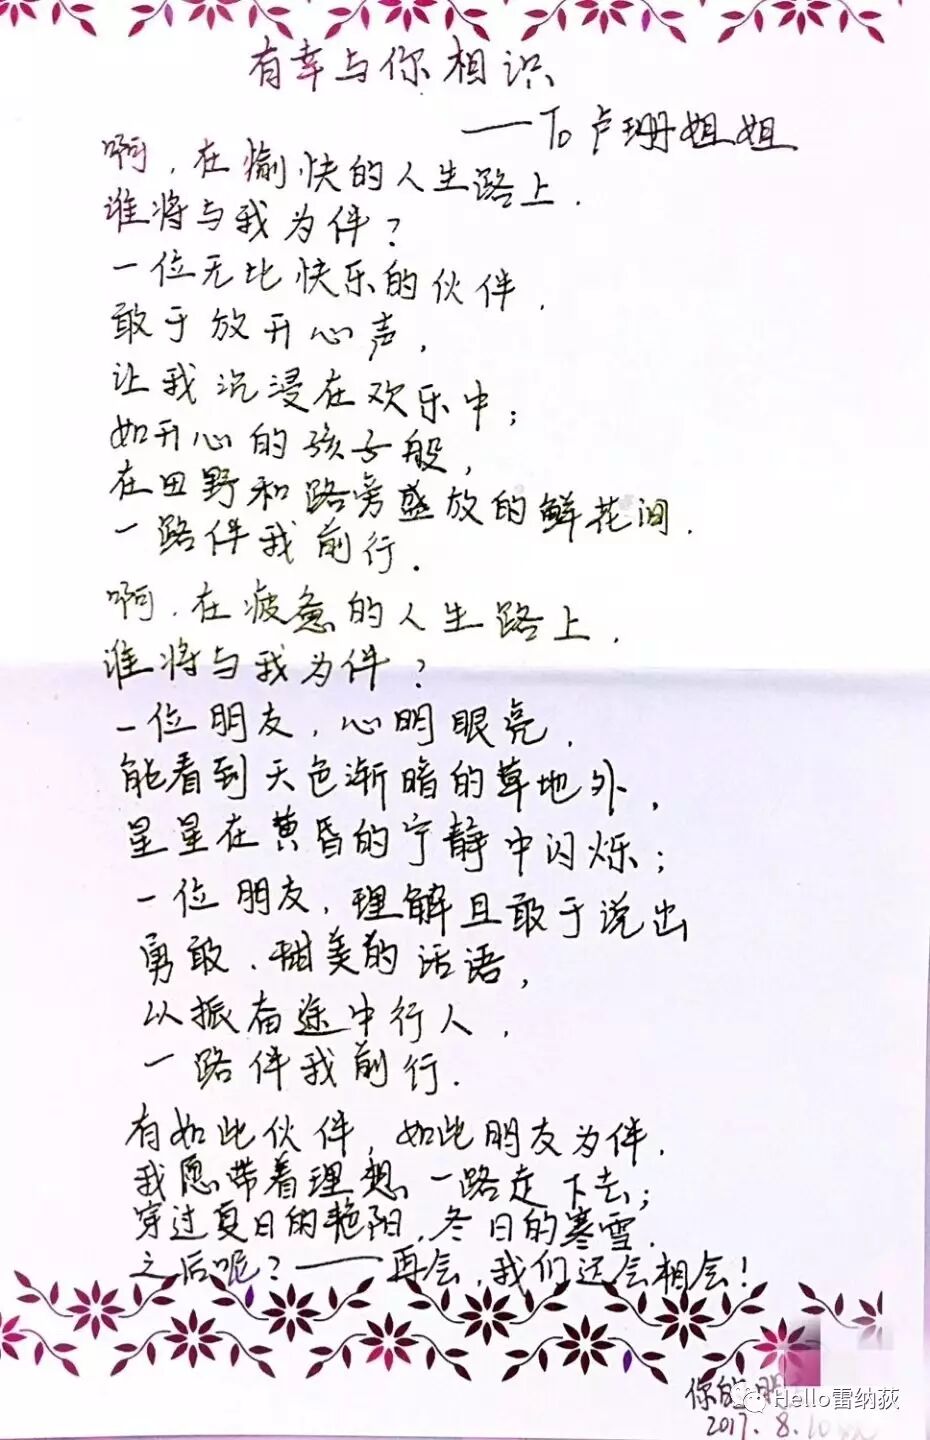 有幸与你相识
——To 卢珊姐姐
啊,在愉快的人生路上.
谁将与我为伴?
一位无比快乐的伙伴,
敢于放开心声,
让我沉浸在欢乐中;
如开心的孩子般,
在田野和路旁盛放的鲜花间.
一路伴我前行.
啊,在疲惫的人生路上,
谁将与我为伴?
一位朋友,心明眼亮,
能看到天色渐暗的草地外,
星星在黄昏的宁静中闪烁;
一位朋友,理解且敢于说出
勇敢、甜美的话语,
以振奋途中行人,
一路伴我前行.
有如此伙伴,如此朋友为伴,
我愿带着理想一路走下去;
穿过夏日的艳阳,冬日的寒雪.
之后呢?——再会,我们还会相会!
你的
2017.8.10
Hello雷纳荻